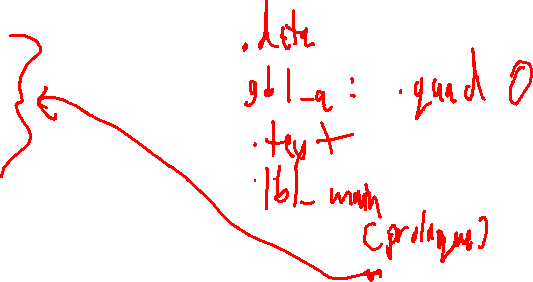 .data
gbl_a : .quad 0
.text
lbl_main
(prologue)